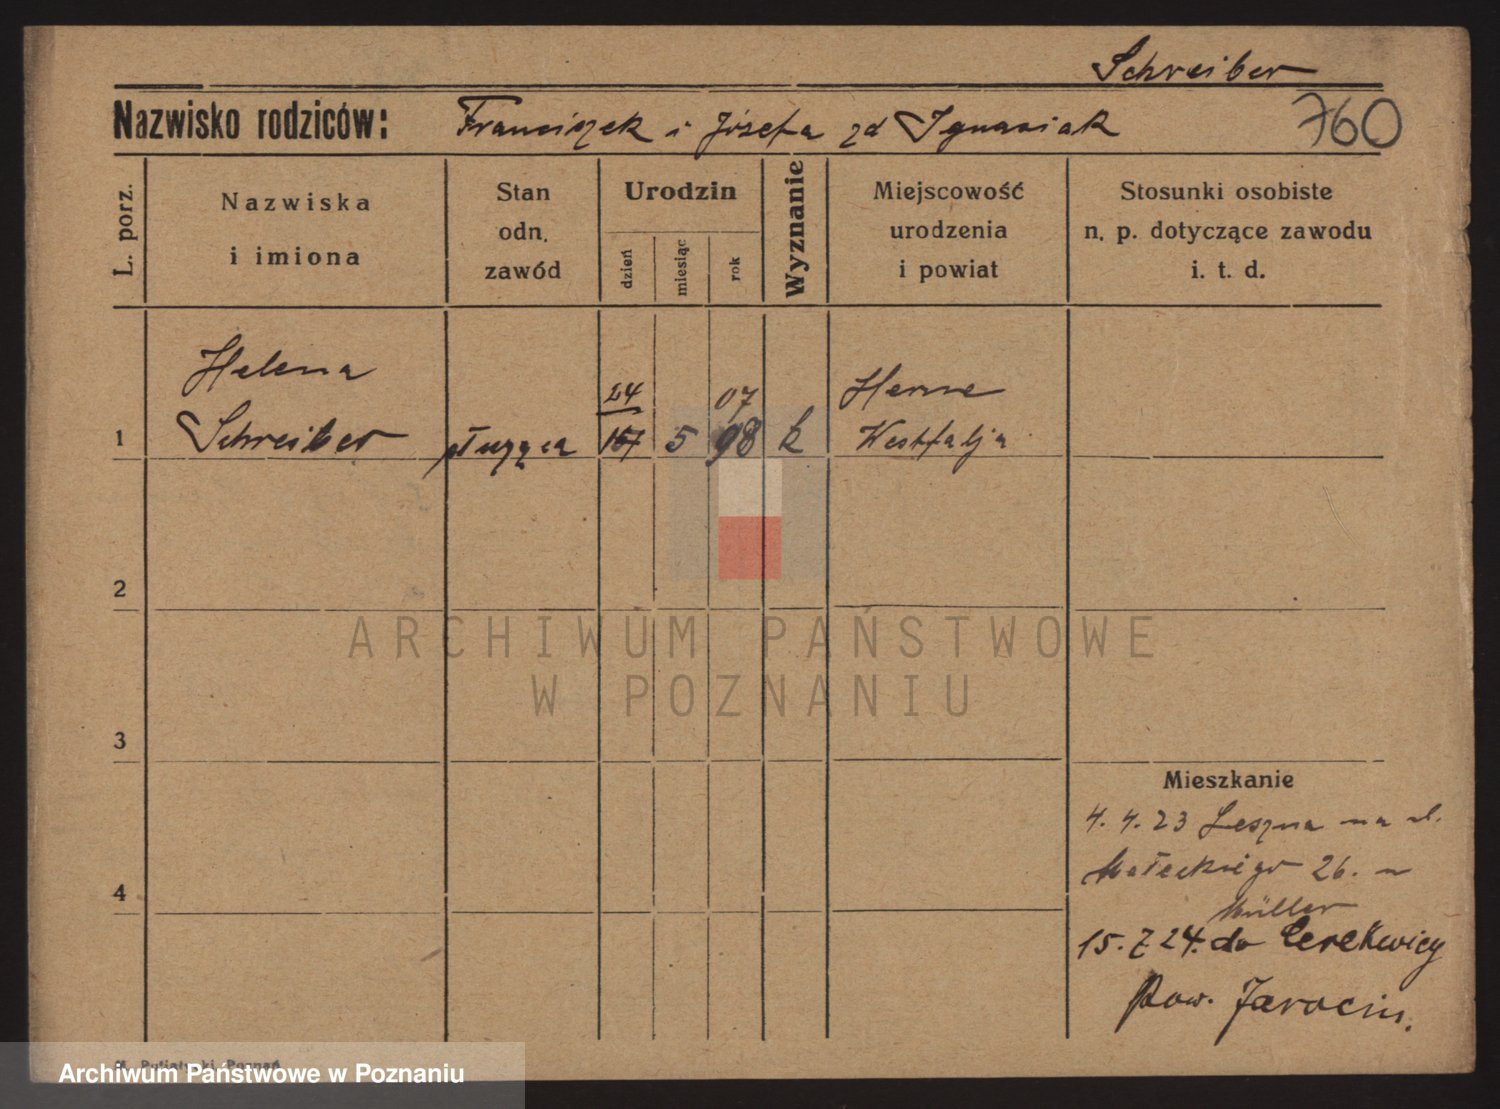 Schreiber
Nazwisko rodziców: Franciszek i Józefa zd Ignasiak 760
L. porz.
Nazwiska
i imiona
Stan
odn.
zawód
Urodzin
dzień
miesiąc
rok
Wyznanie
Miejscowość
urodzenia
i powiat
Stosunki osobiste
n. p. dotyczące zawodu
i. t. d.
Helena
24 07
Herne
1 Schreiber służąca 5 98 k Westfalja
2
ARCHIWUM PAŃSTWOWE
W POZNANIU
3
Mieszkanie
4. 4. 23 Leszna na ul.
4 Małeckiego 26. u
Müller
15. 7 24. do Cerekwicy
Pow. Jarocin.
Poznań
Archiwum Państwowe w Poznaniu